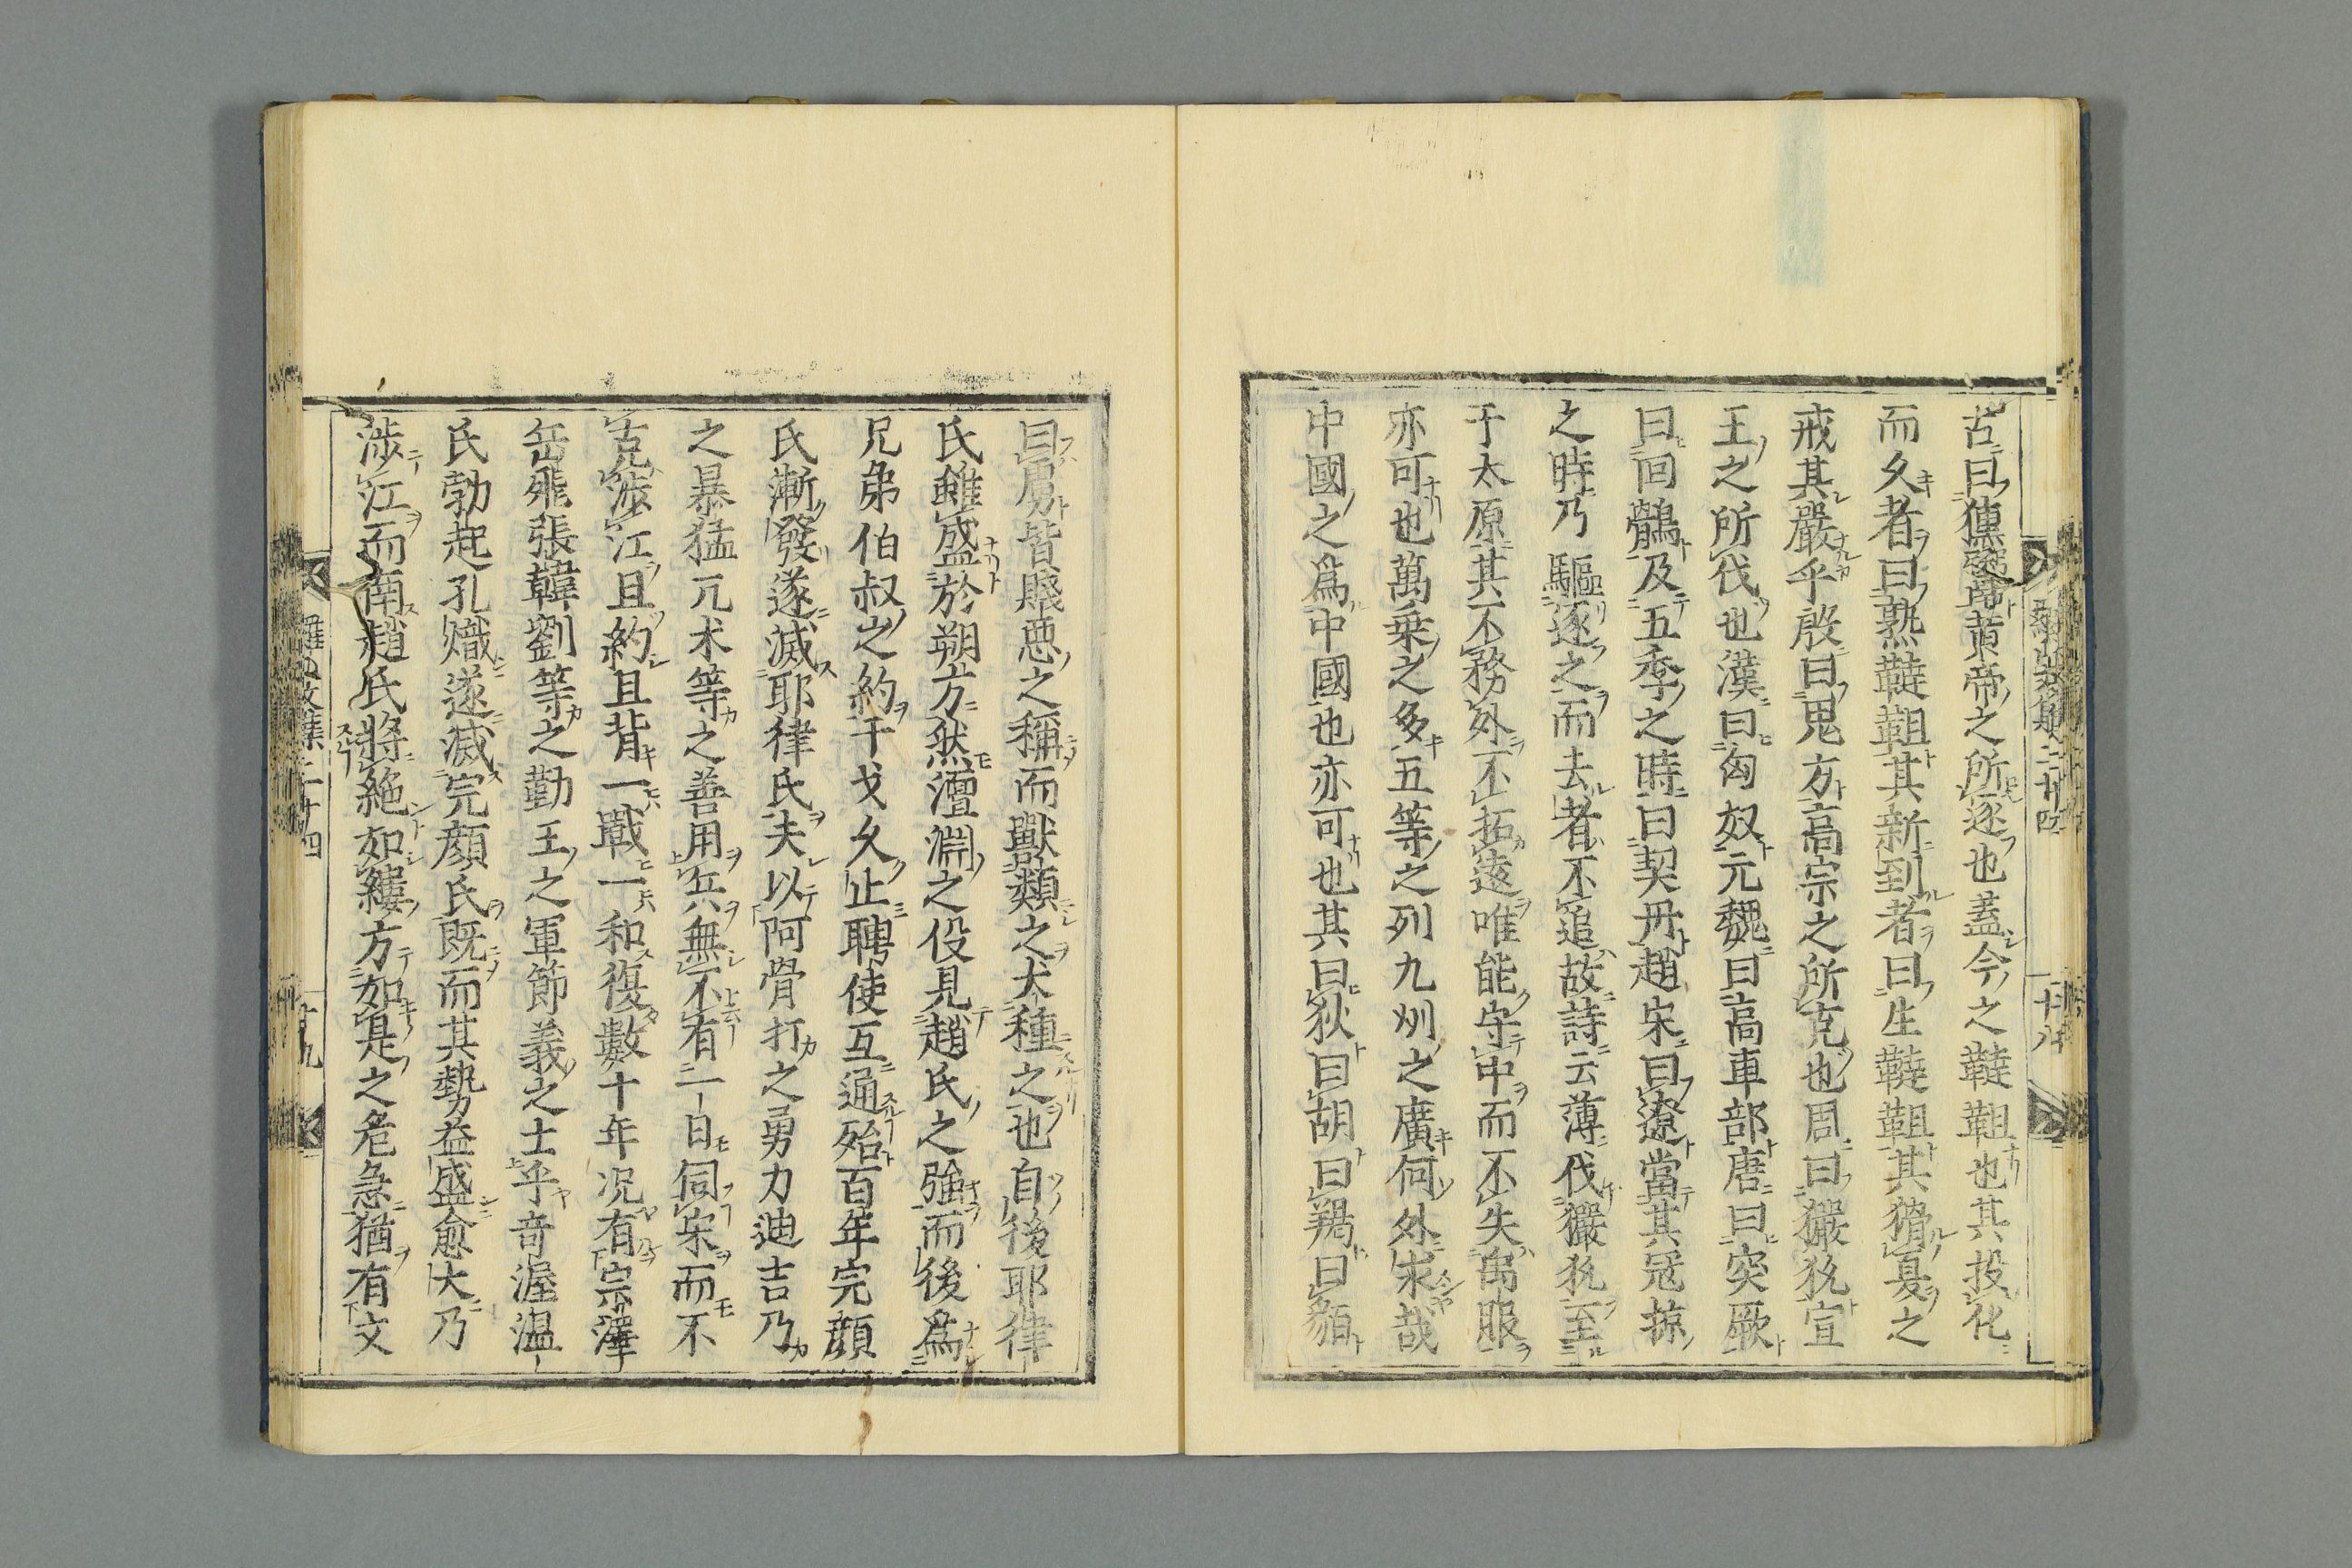 古曰獯鬻黄帝之所逐也蓋今之韃靼也其投化
而久者曰熟韃靼其新到者曰生韃靼其猾夏之
戒其嚴乎殷曰鬼方高宗之所克也周曰玁狁宣
王之所伐也漢曰匈奴元魏曰高車部唐曰突厥
曰回鶻及五季之時曰契丹趙宋曰遼當其冦掠
之時乃驅逐之而去者不追故詩云薄伐玁狁至
于太原其不務外不拓遠唯能守中而不失禹服
亦可也萬乗之多五等之列九州之廣何外求哉
中國之爲中國也亦可也其曰狄曰胡曰羯曰貊
曰虜皆賤惡之稱而獸類之犬種之也自後耶律
氏雖盛於朔方然澶淵之役見趙氏之強而後爲
兄弟伯叔之約干戈久止聘使互通殆百年完顔
氏漸發遂滅耶律氏夫以阿骨打之勇力迪吉乃
之暴猛兀术等之善用兵無不有一日伺宋而不
克渉江且約且背一戰一和復數十年况有宗澤
岳飛張韓劉等之勤王之軍節義之士乎竒渥温
氏勃起孔熾遂滅完顔氏既而其勢益盛愈大乃
渉江而南趙氏將絶如縷方如是之危急猶有文
二十四
十九